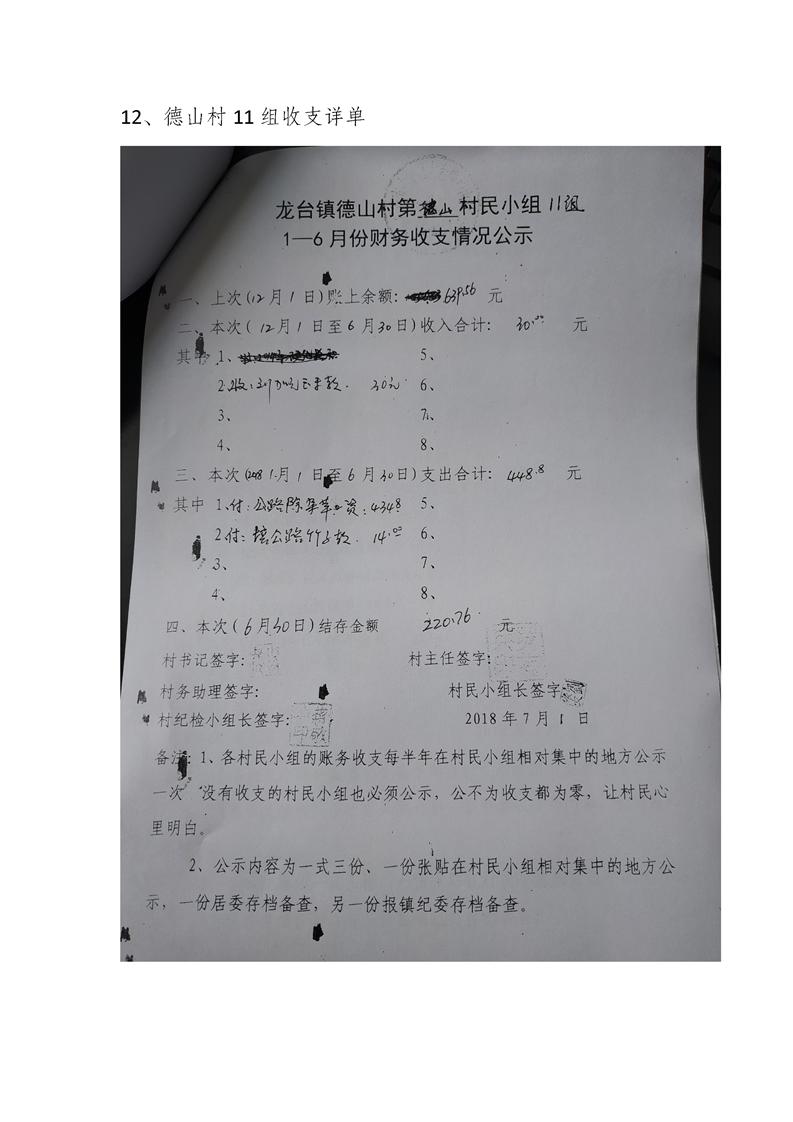 12、德山村 11 组收支详单
龙台镇德山村第德山村民小组11组
1—6 月份财务收支情况公示
一、上次(12月1日)账上余额: 639.56 元
二、本次( 12月1日至6月30日)收入合计: 30.00 元
其中 1、 5、
2收: 款. 30元. 6、
3、 7、
4、 8、
三、本次(2018 1月1日至6月30日)支出合计: 448.8 元
其中 1、付:公路除杂草工资:434.8 5、
2付: 公路竹子款. 14.00 6、
3、 7、
4、 8、
四、本次(6月30日)结存金额 220.76 元
村书记签字: 村主任签字:
村务助理签字: 村民小组长签字:
村纪检小组长签字: 2018年7月1日
备注:1、各村民小组的账务收支每半年在村民小组相对集中的地方公示
一次 没有收支的村民小组也必须公示,公不为收支都为零,让村民心
里明白。
2、公示内容为一式三份、一份张贴在村民小组相对集中的地方公
示,一份居委存档备查,另一份报镇纪委存档备查。